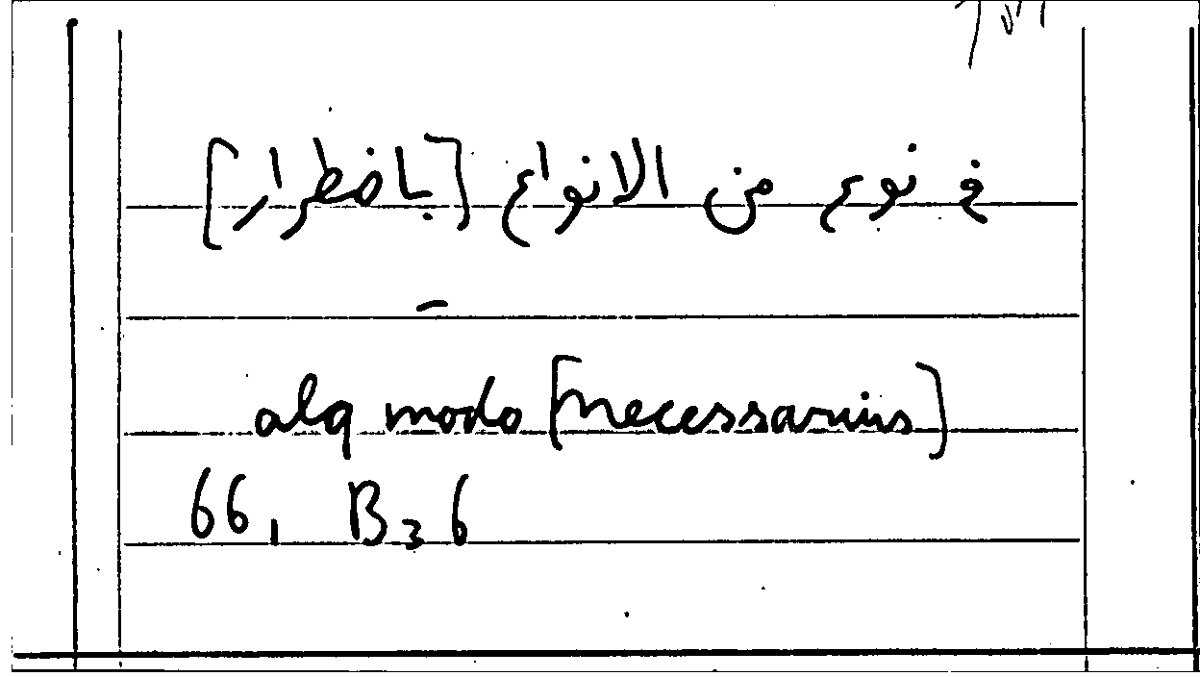 في نوع من الانواع [باضطرار]
alq modo [necessarius]
66, B36